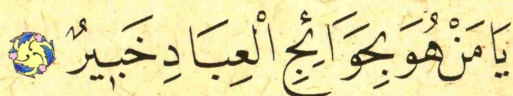 يَا مَنْ هُوَ بِحَوَائِجِ الْعِبَادِ خَبِيرٌ